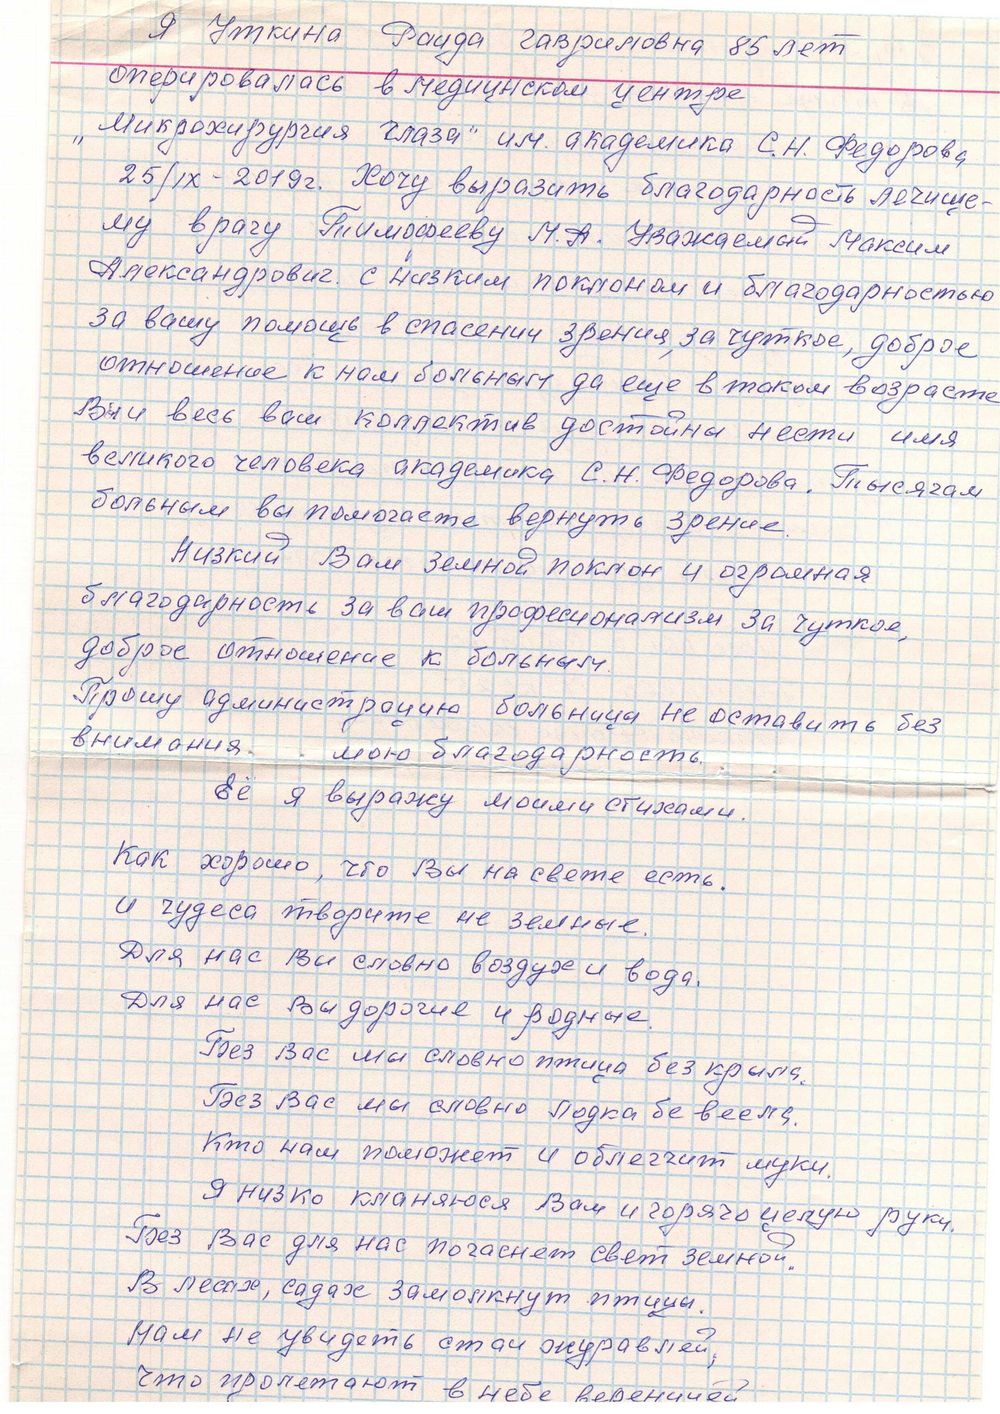 Я Уткина Фаида гавриловна 85 лет
оперировалась в медицнском центре
"Микрохирургия глаза" им. академика С.Н. Федорова
25/IX-2019г. Хочу выразить благодарность лечише-
му врачу Тимофееву М.А. Уважаемый Максим
Александрович. с низким поклоном и благодарностью
за вашу помощь в спасении зрения, за чуткое, доброе
отношение к нам больным да еще в таком возрасте
Вы и весь ваш коллектив достойны нести имя
великого человека академика С.Н. Федорова. Тысячам
больным вы помогаете вернуть зрение.
Низкий Вам земной поклон и огромная
благодарность за ваш професионализм за чуткое,
доброе отношение к больным.
Прошу администрацию больница не оставить без
внимания мою благодарность.
Её я выражу моими стихами.
Как хорошо, что Вы на свете есть.
и чудеса творите не земные.
Для нас Вы словно воздух и вода.
Для нас Вы дорогие и родные.
Без Вас мы словно птица без крыла.
Без Вас мы словно лодка бе весла.
Кто нам поможет и облегчит муки.
Я низко кланяюся Вам и горячо целую руки.
Без Вас для нас погаснет свет земной.
В лесах, садах замолкнут птицы.
Нам не увидеть стаи журавлей,
Что пролетают в небе вереницей